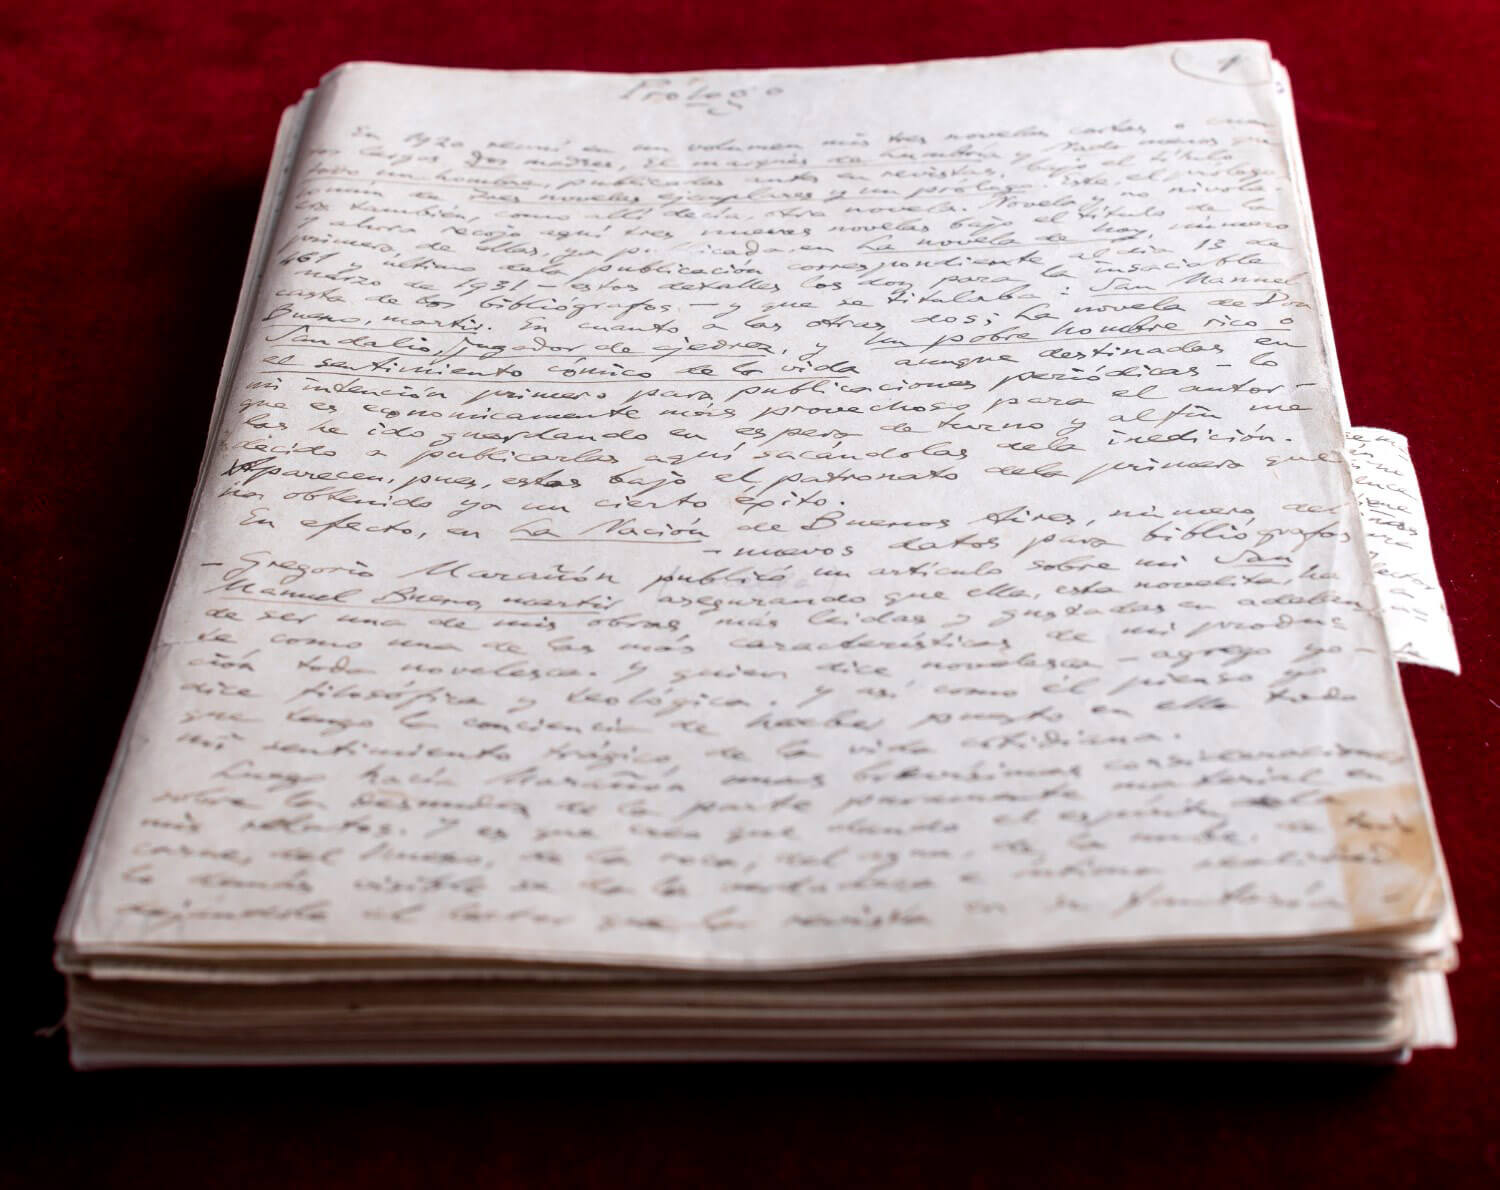 1
Prólogo
En 1920 reuní en un volumen mis tres novelas cortas o cuen-
tos largos Dos madres, El marqués de Lumbría y Nada menos que
todo un hombre, publicadas antes en revistas, bajo el título
común de Tres novelas ejemplares y un prólogo. Este, el prólogo
era también, como allí decía, otra novela. Novela y no nivola.
Y ahora recojo aquí tres nuevas novelas bajo el título de la
primera de ellas, ya publicada en La novela de hoy, número
461 y último de la publicación correspondiente al día 13 de
marzo de 1931 – estos detalles los doy para la insaciable
casta de los bibliógrafos – y que se titulaba: San Manuel
Bueno, martir. En cuanto a las otras dos; La novela de Don
Sandalio, jugador de ajedrez, y Un pobre hombre rico o
el sentimiento cómico de la vida aunque destinadas en
mi intención primero para publicaciones periódicas – lo
que es economicamente más provechoso para el autor –
las he ido guardando en espera de turno y al fin me
decido a publicarlas aquí sacándolas de la inedición.
Aparecen, pues, estas bajo el patronato de la primera que
ha obtenido ya un cierto éxito.
En efecto, en La Nación de Buenos Aires, número del
– nuevos datos para bibliógrafos
– Gregorio Marañón publicó un artículo sobre mi San
Manuel Bueno, martir, asegurando que ella, esta novelita, ha
de ser una de mis obras más leidas y gustadas en adelan-
te como una de las más características de mi produc-
ción toda novelesca. Y quien dice novelesca – agrego yo –
dice filosófica y teológica. Y así como él pienso yo
que tengo la conciencia de haber puesto en ella todo
mi sentimiento trágico de la vida cotidiana.
Luego hacía Marañón unas brevísimas consideraciones
sobre la desnudez de la parte puramente material en
mis relatos. Y es que creo que dando el espíritu de la
carne, del hueso, de la roca, del agua, de la nube, de todo
lo demás visible se da la verdadera e íntima realidad
dejándole al lector que la revista en su fantasía